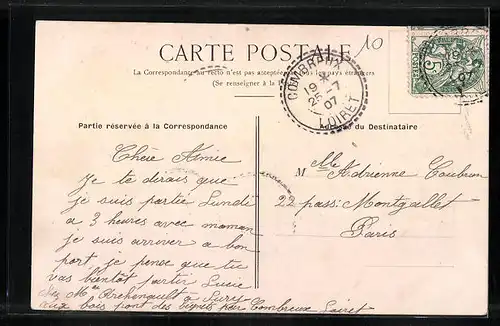 CARTE POSTALE
10
La Correspondance au recto n'est pas acceptée tous les pays étrangers
(Se renseigner à la
COMBREUX
19 25 -7 07
LOIRET
5
POSTES
Partie réservée à la Correspondance
du Destinataire
Chère Amie
Je te dirais que
je suis partie Lundi
a 3 heures avec maman
je suis arriver a bon
port je pense que tu
vas bientot partir Lucie
chez Me Archenault a Sury
aux bois pont des Beignes par Combreux Loiret
M lle Adrienne
22 pass: Montgallet
Paris